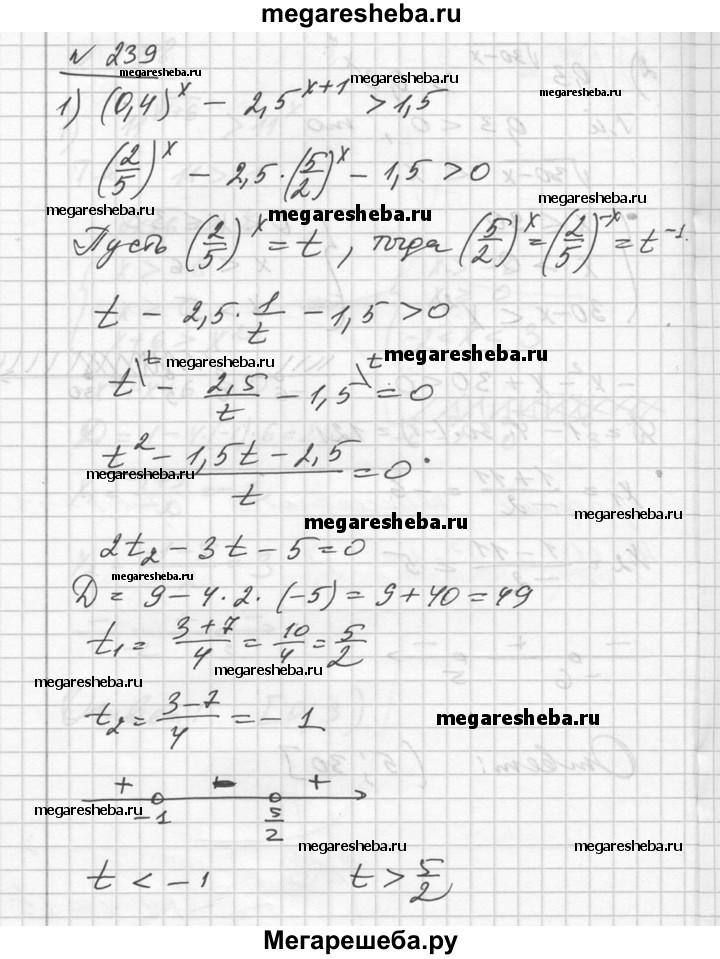 megaresheba.ru
№ 239
megaresheba.ru
megaresheba.ru
megaresheba.ru
1) (0,4)^x − 2,5^{x+1} > 1,5
(2/5)^x − 2,5·(5/2)^x − 1,5 > 0
megaresheba.ru
megaresheba.ru
megaresheba.ru
Пусть (2/5)^x = t, тогда (5/2)^x = (2/5)^{-x} = t^{-1}.
t − 2,5·1/t − 1,5 > 0
megaresheba.ru
megaresheba.ru
t\t − 2,5/t − 1,5\t = 0
(t² − 1,5t − 2,5)/t = 0
megaresheba.ru
megaresheba.ru
megaresheba.ru
2t₂ − 3t − 5 = 0
megaresheba.ru
D = 9 − 4·2·(−5) = 9 + 40 = 49
t₁ = (3+7)/4 = 10/4 = 5/2
megaresheba.ru
megaresheba.ru
t₂ = (3−7)/4 = −1
megaresheba.ru
+ − +
−1 5/2
megaresheba.ru
megaresheba.ru
t < −1 t > 5/2
Мегарешеба.ру